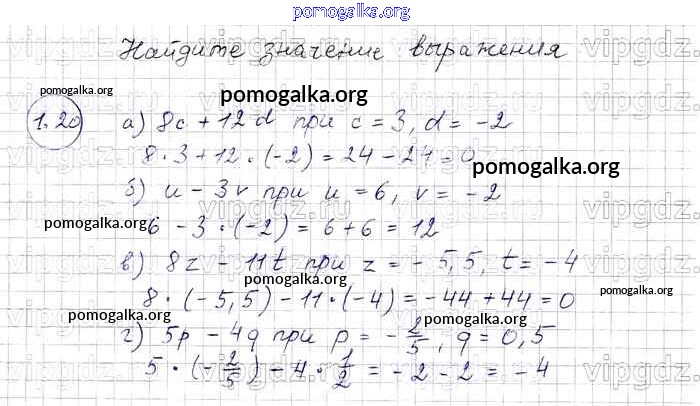 pomogalka.org
Найдите значение выражения
pomogalka.org
pomogalka.org
1.20 а) 8c + 12d при c = 3, d = -2
8 · 3 + 12 · (-2) = 24 - 24 = 0
pomogalka.org
б) u - 3v при u = 6, v = -2
pomogalka.org
6 - 3 · (-2) = 6 + 6 = 12
pomogalka.org
в) 8z - 11t при z = -5,5, t = -4
pomogalka.org
8 · (-5,5) - 11 · (-4) = -44 + 44 = 0
pomogalka.org
pomogalka.org
г) 5p - 4q при p = -2/5, q = 0,5
5 · (-2/5) - 4 · 1/2 = -2 - 2 = -4
pomogalka.org